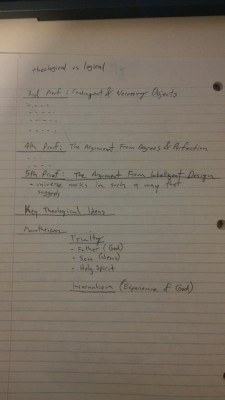 theological vs logical
3rd Proof: Contingent & Necessary Objects
- - - -
- - - -
- - - - -
- - - -
4th Proof: The Argument From Degrees & Perfection
- - - -
5th Proof: The Argument From Intelligent Design
- universe works in such a way that
suggests
Key Theological Ideas
Monotheism
Trinity
- Father (God)
- Son (Jesus)
- Holy Spirit
Incarnation (Experience of God)